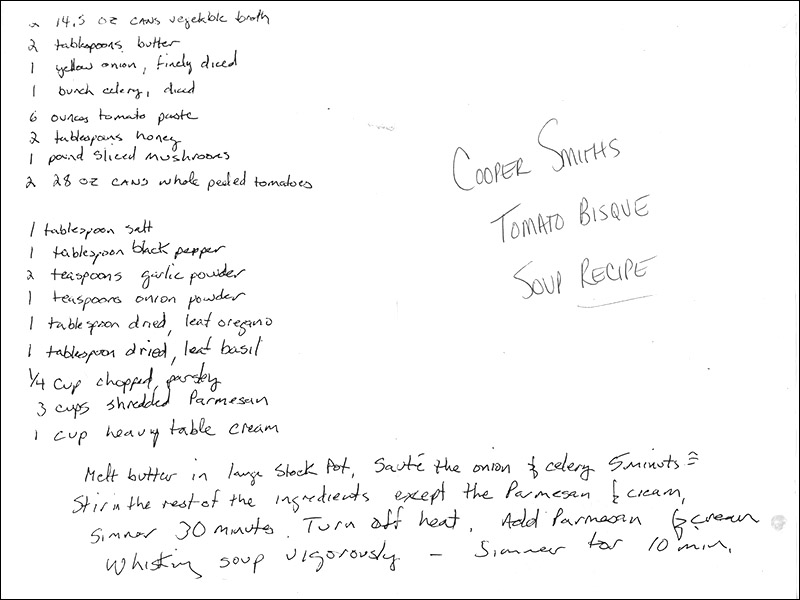 2 14.5 oz cans vegetable broth
2 tablespoons butter
1 yellow onion, finely diced
1 bunch celery, diced
6 ounces tomato paste
2 tablespoons honey
1 pound sliced mushrooms
2 28 oz cans whole peeled tomatoes
1 tablespoon salt
1 tablespoon black pepper
2 teaspoons garlic powder
1 teaspoons onion powder
1 tablespoon dried, leaf oregano
1 tablespoon dried, leaf basil
1/4 cup chopped parsley
3 cups shredded Parmesan
1 cup heavy table cream
COOPER SMITHS
TOMATO BISQUE
SOUP RECIPE
Melt butter in large Stock Pot, Sauté the onion & celery 5 minuts ≅
Stir in the rest of the ingredients except the Parmesan & cream,
Simmer 30 minutes. Turn off heat. Add Parmesan & cream
Whisking soup vigorously – Simmer for 10 min.